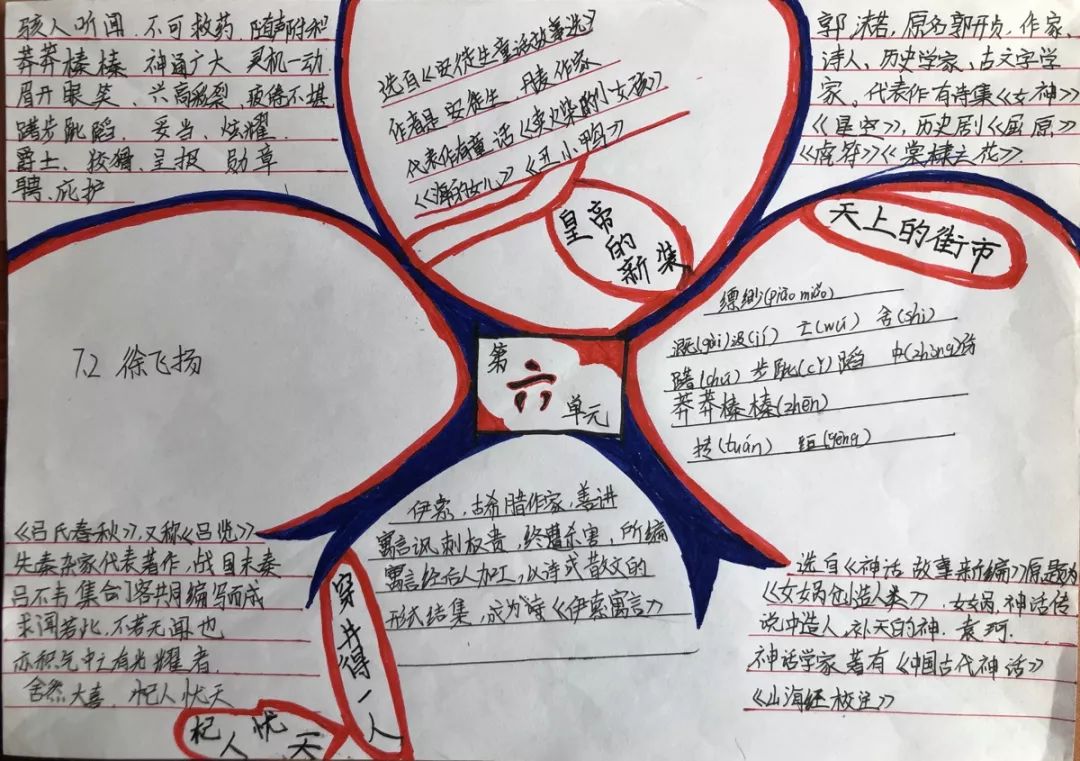 骇人听闻 不可救药 随声附和
莽莽榛榛 神通广大 灵机一动
眉开眼笑、兴高彩裂,疲倦不堪
踌步跐蹈、妥当、炫耀
爵士、狡猾、呈报 勋章
聘、庇护
选自《安徒生童话故事选》
作者是安徒生 丹麦作家
代表作有童话《卖火柴的小女孩》
《海的女儿》《丑小鸭》
皇帝
的
新装
郭沫若,原名郭开贞,作家、
诗人、历史学家、古文字学
家。代表作有诗集《女神》
《星空》,历史剧《屈原》
《虎符》《棠棣之花》
天上的街市
缥缈(piāo miǎo)
溉(gài)汲(jí) 毋(wú) 舍(shì)
踌(chú)步跐(cǐ)蹈 中(zhòng)伤
莽莽榛榛(zhēn)
抟(tuán) (gèng)
7.2 徐飞扬
第
六
单元
《吕氏春秋》,又称《吕览》
先秦杂家代表著作,战国末秦
吕不韦集合门客共同编写而成
求闻若此,不若无闻也
亦积气中之有光耀者
舍然大喜 杞人忧天
穿井得一人
杞人忧天
伊索,古希腊作家,善讲
寓言讽刺权贵,终遭杀害,所编
寓言经后人加工,以诗或散文的
形式结集,成为《伊索寓言》
选自《神话故事新编》原题为
《女娲创造人类》,女娲,神话传
说中造人,补天的神.袁珂.
神话学家 著有《中国古代神话》
《山海经校注》